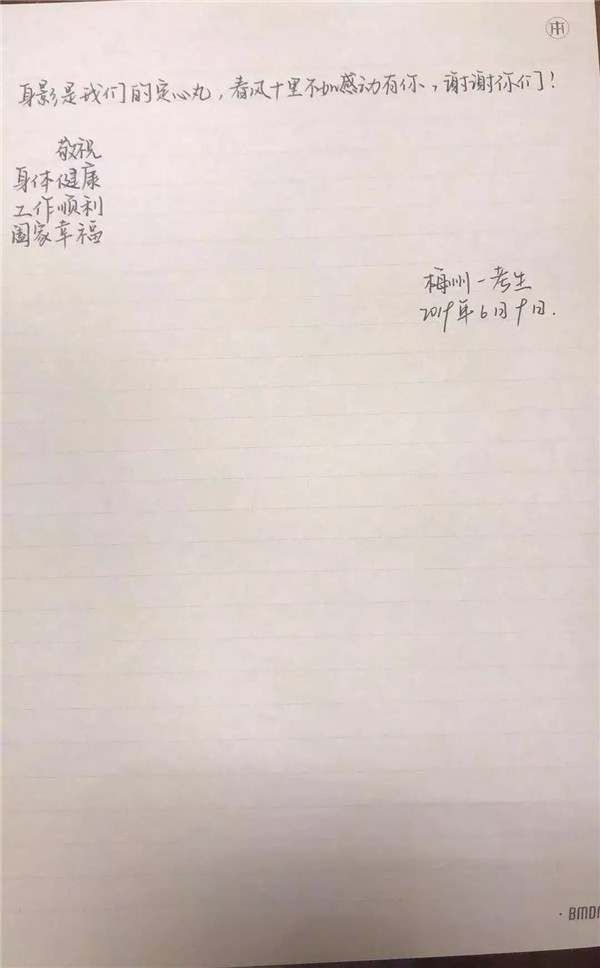 身影是我们的定心丸，春风十里不如感动有你，谢谢你们！
敬祝
身体健康
工作顺利
阖家幸福
梅州一考生
2019年6月9日.